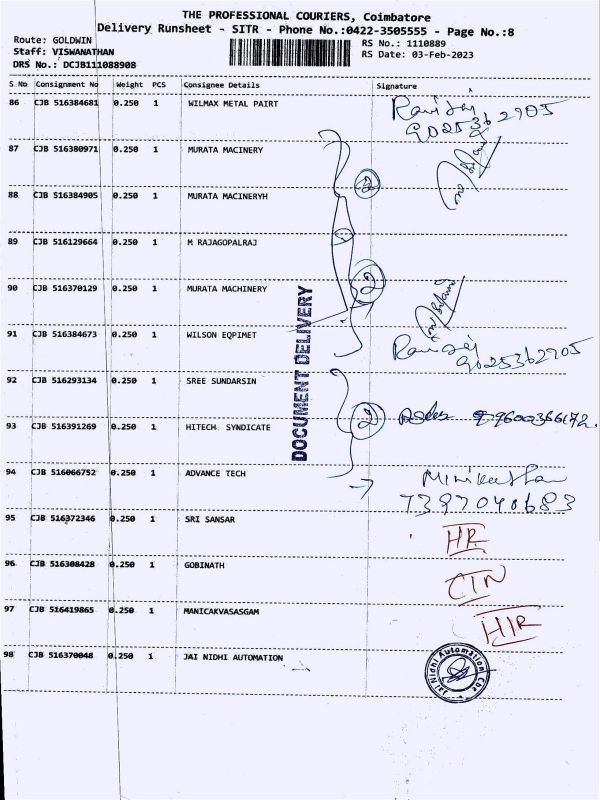 THE PROFESSIONAL COURIERS, Coimbatore
Delivery Runsheet - SITR - Phone No.:0422-3505555 - Page No.:8
Route: GOLDWIN
RS No.: 1110889
Staff: VISWANATHAN
RS Date: 03-Feb-2023
DRS No.: DCJB111088908
S. No Consignment No Weight PCS Consignee Details Signature
86 CJB 516384681 0.250 1 WILMAX METAL PAIRT
9025362905
87 CJB 516380971 0.250 1 MURATA MACINERY
2
88 CJB 516384905 0.250 1 MURATA MACINERYH
89 CJB 516129664 0.250 1 M RAJAGOPALRAJ
90 CJB 516370129 0.250 1 MURATA MACHINERY
2
91 CJB 516384673 0.250 1 WILSON EQPIMET
9025362905
DOCUMENT DELIVERY
92 CJB 516293134 0.250 1 SREE SUNDARSIN
93 CJB 516391269 0.250 1 HITECH SYNDICATE
2
94 CJB 516066752 0.250 1 ADVANCE TECH
7397040683
95 CJB 516372346 0.250 1 SRI SANSAR
HR
96 CJB 516308428 0.250 1 GOBINATH
CTN
97 CJB 516419865 0.250 1 MANICAKVASASGAM
HIR
98 CJB 516370048 0.250 1 JAI NIDHI AUTOMATION
Jai Nidhi Automation Cbe